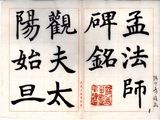 孟法師
碑銘
觀夫太
陽始旦